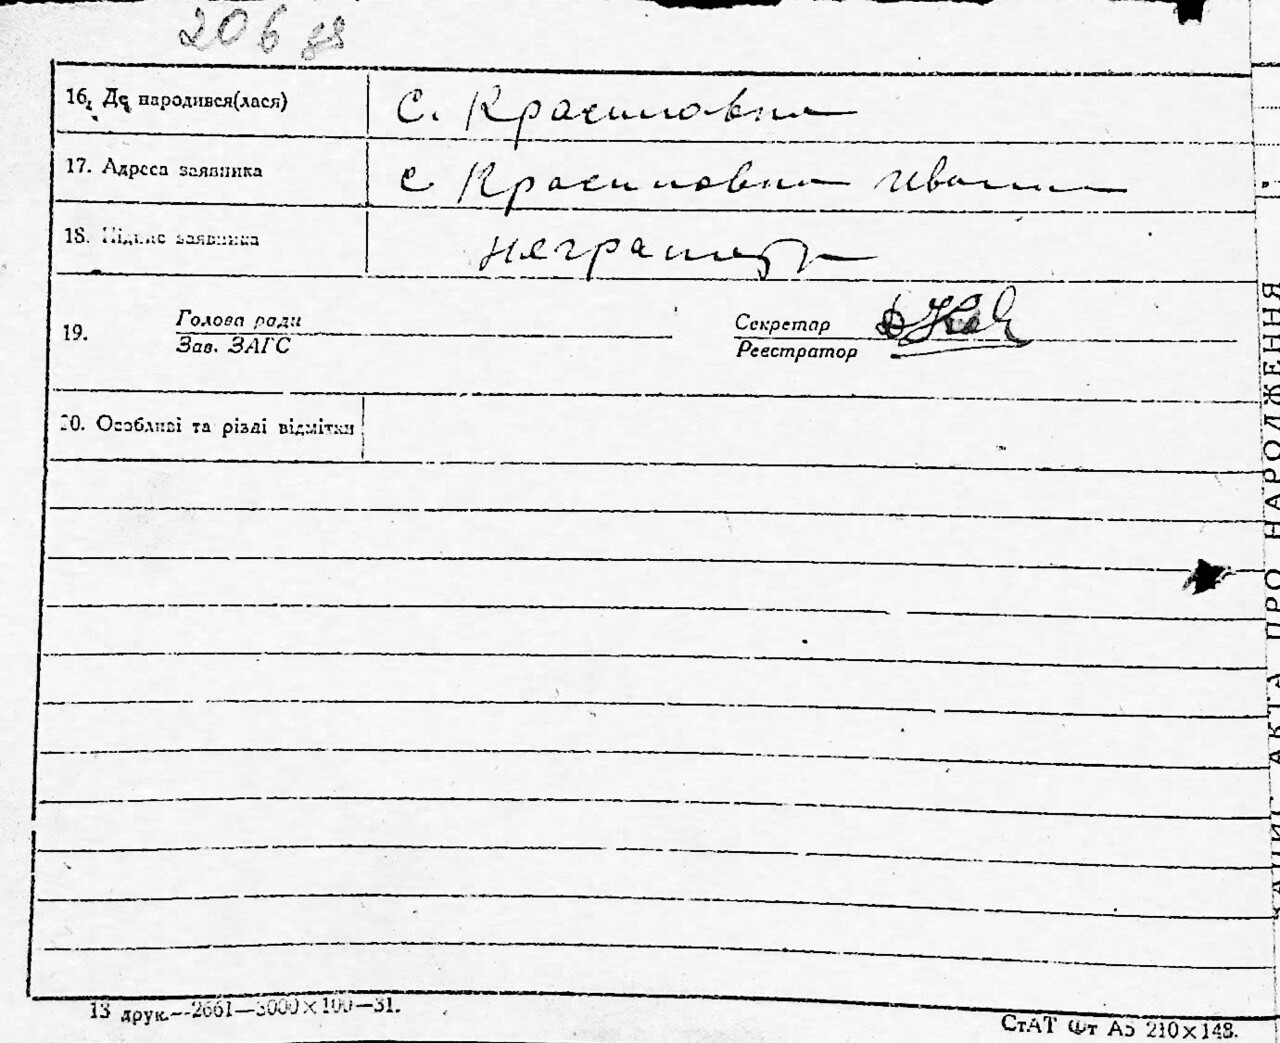 206 зв
16. Де народився(лася) с. Красиловка
17. Адреса заявника с Красиловка Иванк
18. Підпис заявника неграмотн
19. Голова ради Секретар
Зав. ЗАГС Реєстратор
20. Особливі та різні відмітки
13 друк.--2661—3000×100—31.
СтАТ Фт А5 210×148.
ЗАПИС АКТА ПРО НАРОДЖЕННЯ